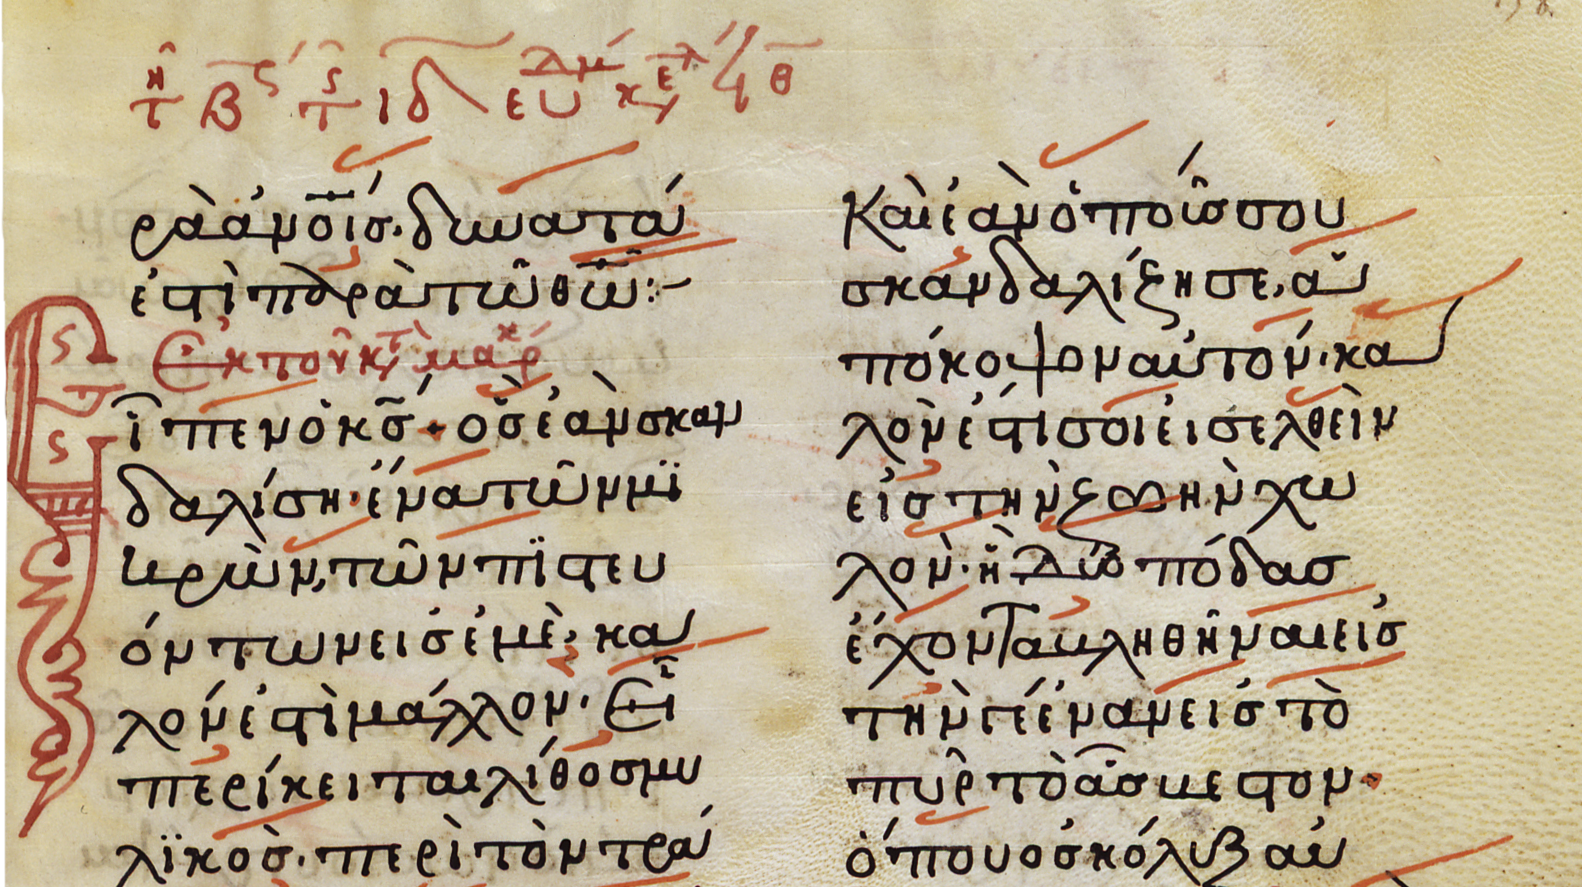 ρὰ ἀν̅ο̅ι̅σ· δυνατά
ἐστὶ παρὰ τῶ θ̅ῶ̅:
Ἐκ τοῦ κτ μαρ
εἶπεν ὁ κ̅σ̅· ὃσ ἐὰν σκαν
δαλίση· ἕνα τῶν μϊ
κρῶν, τῶν πϊστευ
όντων εἰσ ἐμὲ· κα
λόν ἐστὶ μάλλον· Εἰ
περίκειται λίθοσ μυ
λϊκὸσ· περὶ τὸν τρά
Καὶ ἐὰν ὁ ποῦσ σου
σκανδαλίζη σε, ἀ
πόκοψον αὐτόν· κα
λὸν ἐστι σοι εἰσελθεῖν
εἰσ τὴν ζωὴν χω
λὸν· ἢ δύο πόδασ
ἔχοντα κληθῆναι εἰσ
τὴν γέεναν εἰσ τὸ
πῦρ τὸ ἄσβεστον·
ὅπου ὁ σκόληξ αὐ